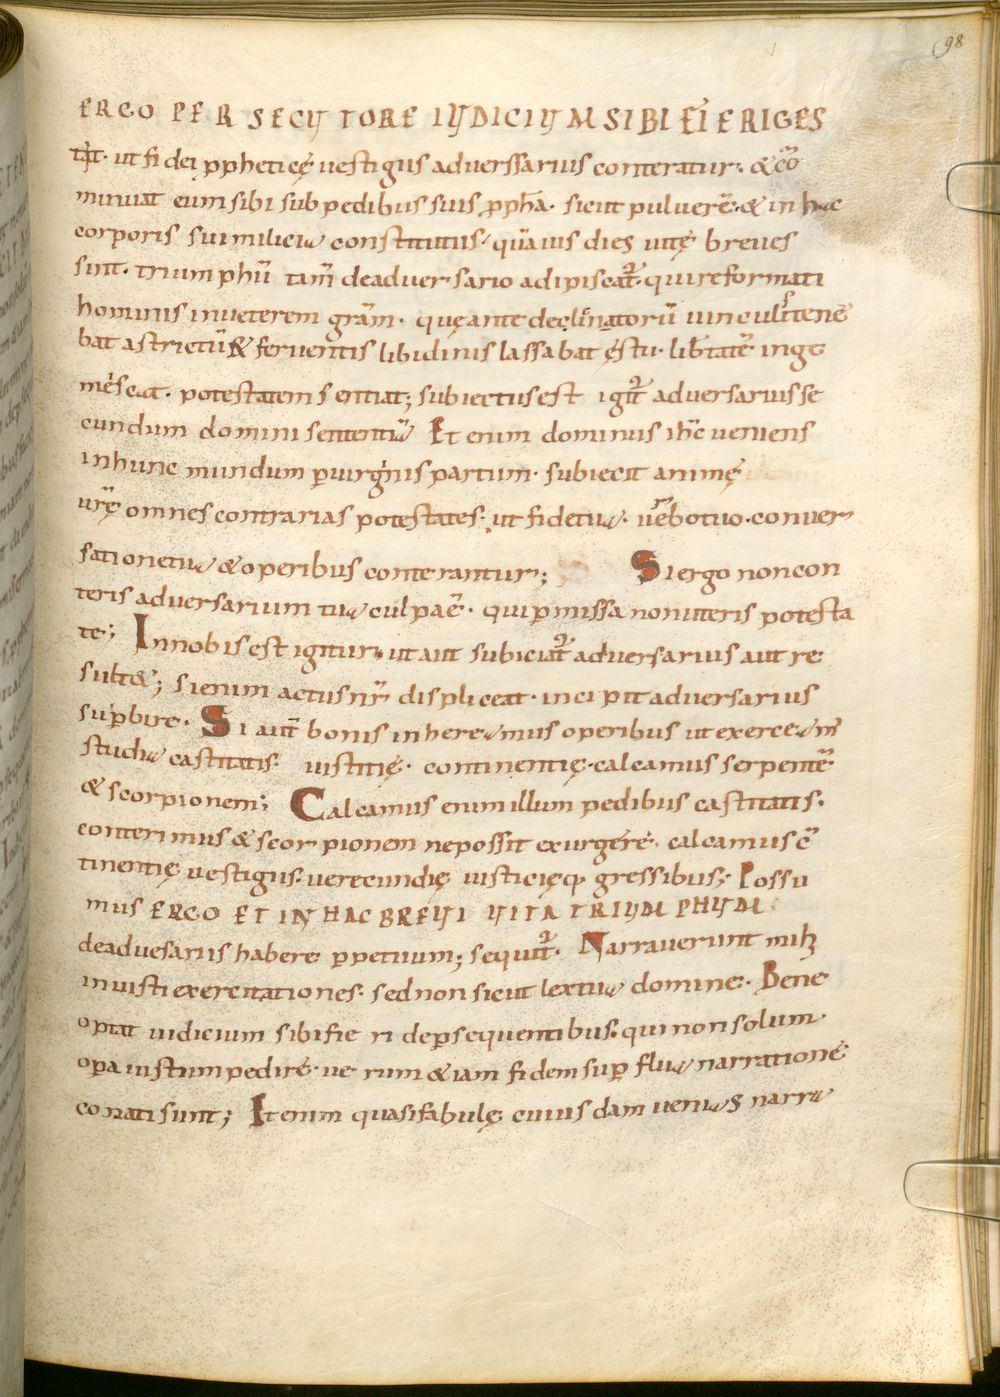 98
ERGO PER SECUTORE IUDICIUM SIBI FIERI GES
tit· ut fidei ꝓpheticę vestigiis adverssarius conteratur· & cō
minuat eum sibi sub pedibus suis ꝓpha· sicut pulverē· & in hac
corporis sui milicia constitutus, quāvis dies vitę breves
sint· triumphū tam̄ de adversario adipiscat᷑· qui reformati
hominis in veterem grām· quę ante declinatorū vinculis tene
bat astrictū & ferventis libidinis lassabat ęstu· lib̄tatē inge
mescat· potestatem sentiat; subiectus est igit᷑ adversarius se
cundum domini sententiā Et enim dominus ih̄c veniens
in hunc mundum ꝑ virginis partum· subiecit animę
vrę̄ omnes contrarias potestates· ut fide tua· verbo tuo· conver
satione tua & operibus conterantur; Si ergo non con
teris adversarium tua culpa ē· qui ꝑmissa non uteris potesta
te; In nobis est igitur· ut aut subiciat᷑ adversarius aut re
sult&; si enim actus nr̄ displiceat· incipit adversarius
suꝑbire· Si aut̄ bonis inhereamus operibus ut exerceam̄
studia castitatis· iustitię· continentię· calcamus serpentē
& scorpionem; Calcamus enim illum pedibus castitatis·
conterimus & scorpionem ne possit exurgere· calcamus cō
tinentię vestigiis· verecundię iusticięq; gressibus; Possu
mus ERGO ET IN HAC BREVI VITA TRIUMPHUM
de advesariis habere ꝑpetuum; sequit᷑· Narraverunt mihi
iniusti exercitationes· sed non sicut lex tua domine· Bene
optat iudicium sibi fieri de ꝑsequentibus· qui non solum
oꝑa iustum pedire· verum & iam fidem suꝑflua narratione
conati sunt; Et enim quasi fabulę cuiusdam venias narra